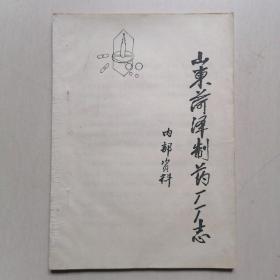 山東菏泽制药厂厂志
内部资料